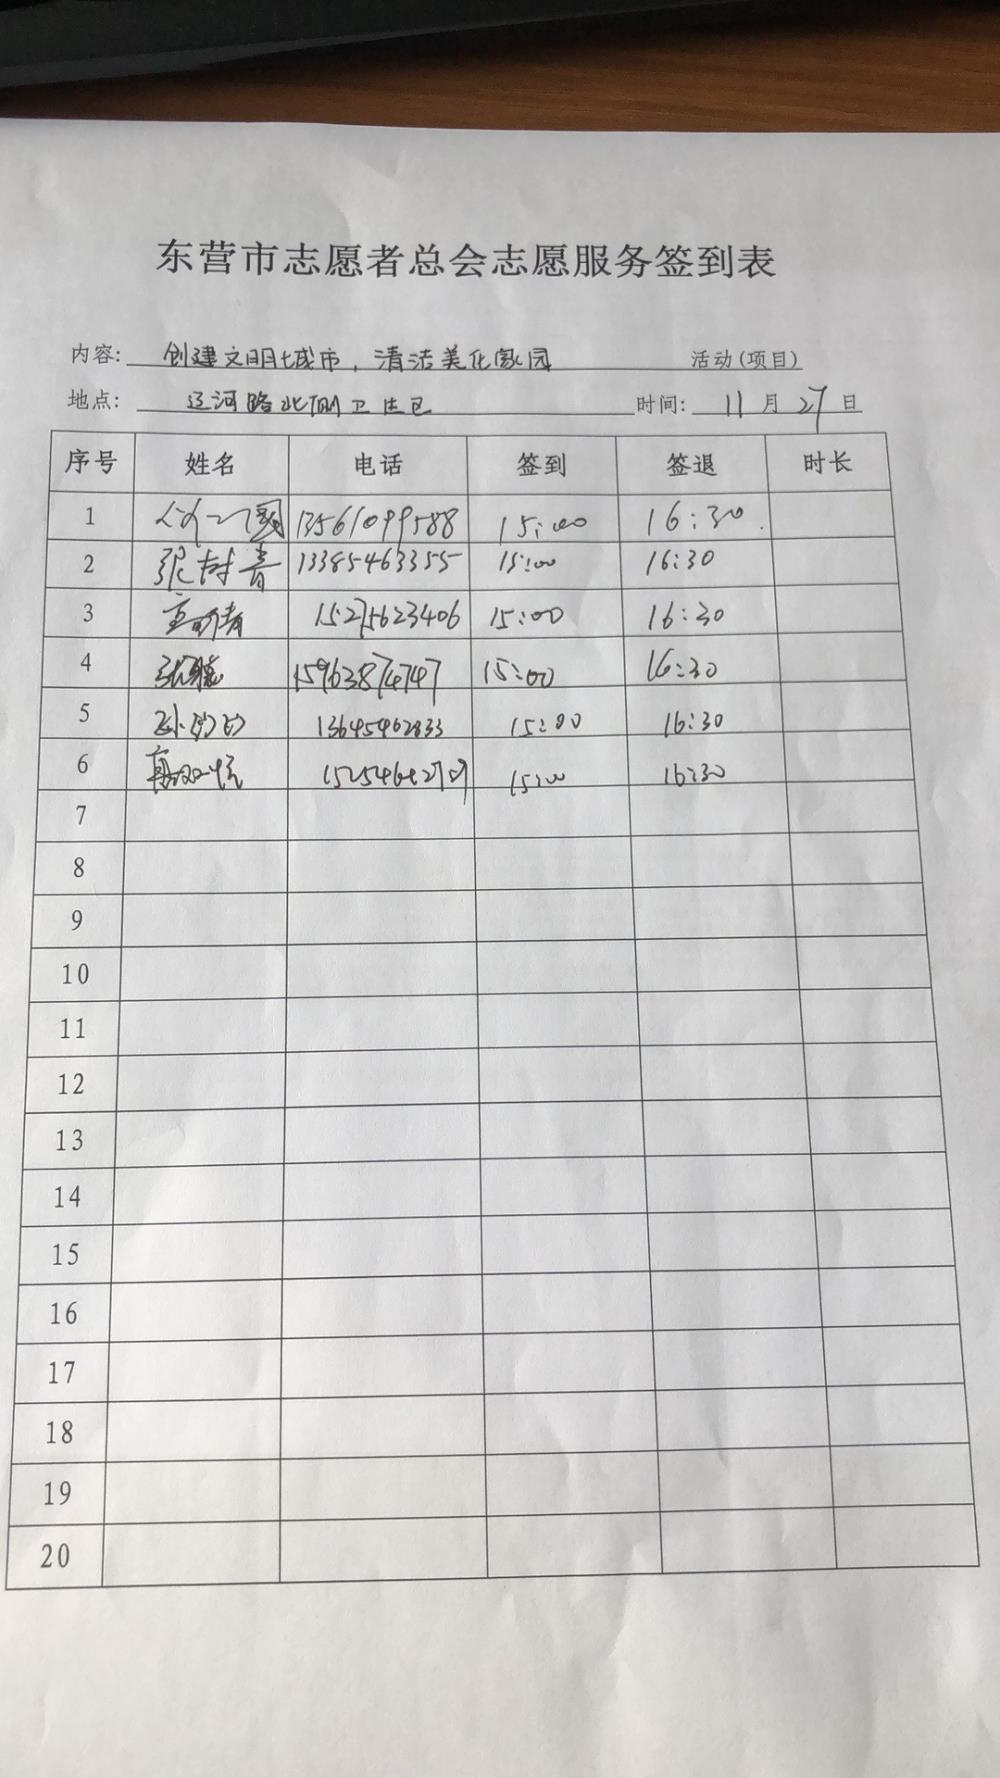 东营市志愿者总会志愿服务签到表
内容: 创建文明城市，清洁美化家园 活动(项目)
地点: 辽河路北侧卫生区 时间: 11月27日
序号 姓名 电话 签到 签退 时长
1 13561099588 15:00 16:30
2 张树青 13385463355 15:00 16:30
3 15275623406 15:00 16:30
4 15963874747 15:00 16:30
5 13645462833 15:00 16:30
6 15:00 16:30
7
8
9
10
11
12
13
14
15
16
17
18
19
20